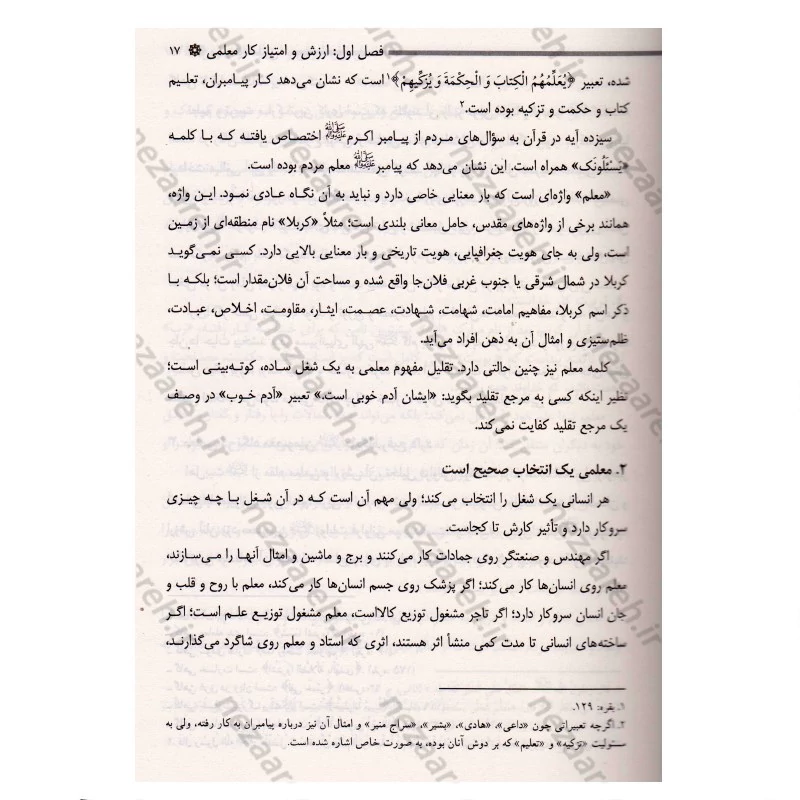 فصل اول: ارزش و امتیاز کار معلمی ۱۷
شده، تعبیر ﴿یُعَلِّمُهُمُ الْکِتابَ وَ الْحِکْمَةَ وَ یُزَکِّیهِمْ﴾۱ است که نشان می‌دهد کار پیامبران، تعلیم
کتاب و حکمت و تزکیه بوده است.۲
سیزده آیه در قرآن به سؤال‌های مردم از پیامبر اکرمﷺ اختصاص یافته که با کلمه
«یَسْئَلُونَک» همراه است. این نشان می‌دهد که پیامبرﷺ معلم مردم بوده است.
«معلم» واژه‌ای است که بار معنایی خاصی دارد و نباید به آن نگاه عادی نمود. این واژه،
همانند برخی از واژه‌های مقدس، حامل معانی بلندی است؛ مثلاً «کربلا» نام منطقه‌ای از زمین
است، ولی به جای هویت جغرافیایی، هویت تاریخی و بار معنایی بالایی دارد. کسی نمی‌گوید
کربلا در شمال شرقی یا جنوب غربی فلان‌جا واقع شده و مساحت آن فلان‌مقدار است؛ بلکه با
ذکر اسم کربلا، مفاهیم امامت، شهامت، شهادت، عصمت، ایثار، مقاومت، اخلاص، عبادت،
ظلم‌ستیزی و امثال آن به ذهن افراد می‌آید.
کلمه معلم نیز چنین حالتی دارد. تقلیل مفهوم معلمی به یک شغل ساده، کوته‌بینی است؛
نظیر اینکه کسی به مرجع تقلید بگوید: «ایشان آدم خوبی است.» تعبیر «آدم خوب» در وصف
یک مرجع تقلید کفایت نمی‌کند.
۲. معلمی یک انتخاب صحیح است
هر انسانی یک شغل را انتخاب می‌کند؛ ولی مهم آن است که در آن شغل با چه چیزی
سروکار دارد و تأثیر کارش تا کجاست.
اگر مهندس و صنعتگر روی جمادات کار می‌کنند و برج و ماشین و امثال آنها را می‌سازند،
معلم روی انسان‌ها کار می‌کند؛ اگر پزشک روی جسم انسان‌ها کار می‌کند، معلم با روح و قلب و
جان انسان سروکار دارد؛ اگر تاجر مشغول توزیع کالااست، معلم مشغول توزیع علم است؛ اگر
ساخته‌های انسانی تا مدت کمی منشأ اثر هستند، اثری که استاد و معلم روی شاگرد می‌گذارند،
۱. بقره: ۱۲۹.
۲. اگرچه تعبیراتی چون «داعی»، «هادی»، «بشیر»، «سراج منیر» و امثال آن نیز درباره پیامبران به کار رفته، ولی به
مسئولیت «تزکیه» و «تعلیم» که بر دوش آنان بوده، به صورت خاص اشاره شده است.
nezaareh.ir